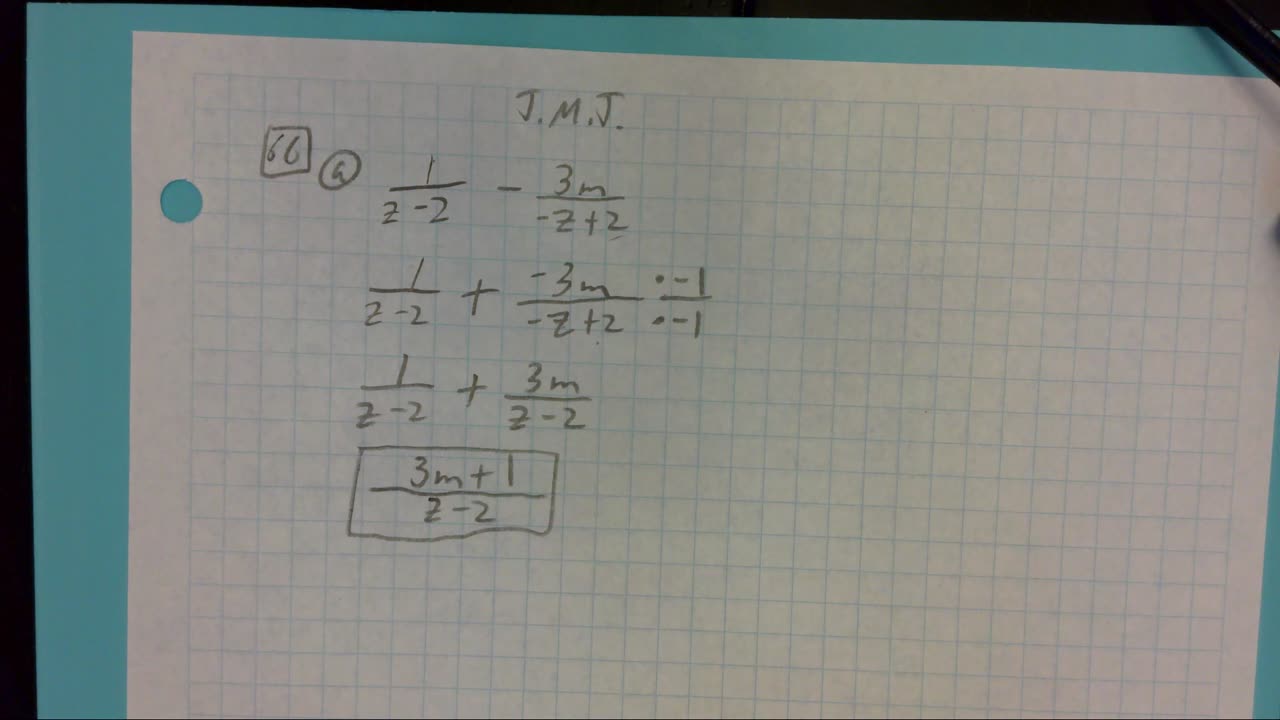 J.M.J.
66 a 1/(z-2) - 3m/(-z+2)
1/(z-2) + -3m/(-z+2) ·-1/·-1
1/(z-2) + 3m/(z-2)
(3m+1)/(z-2)